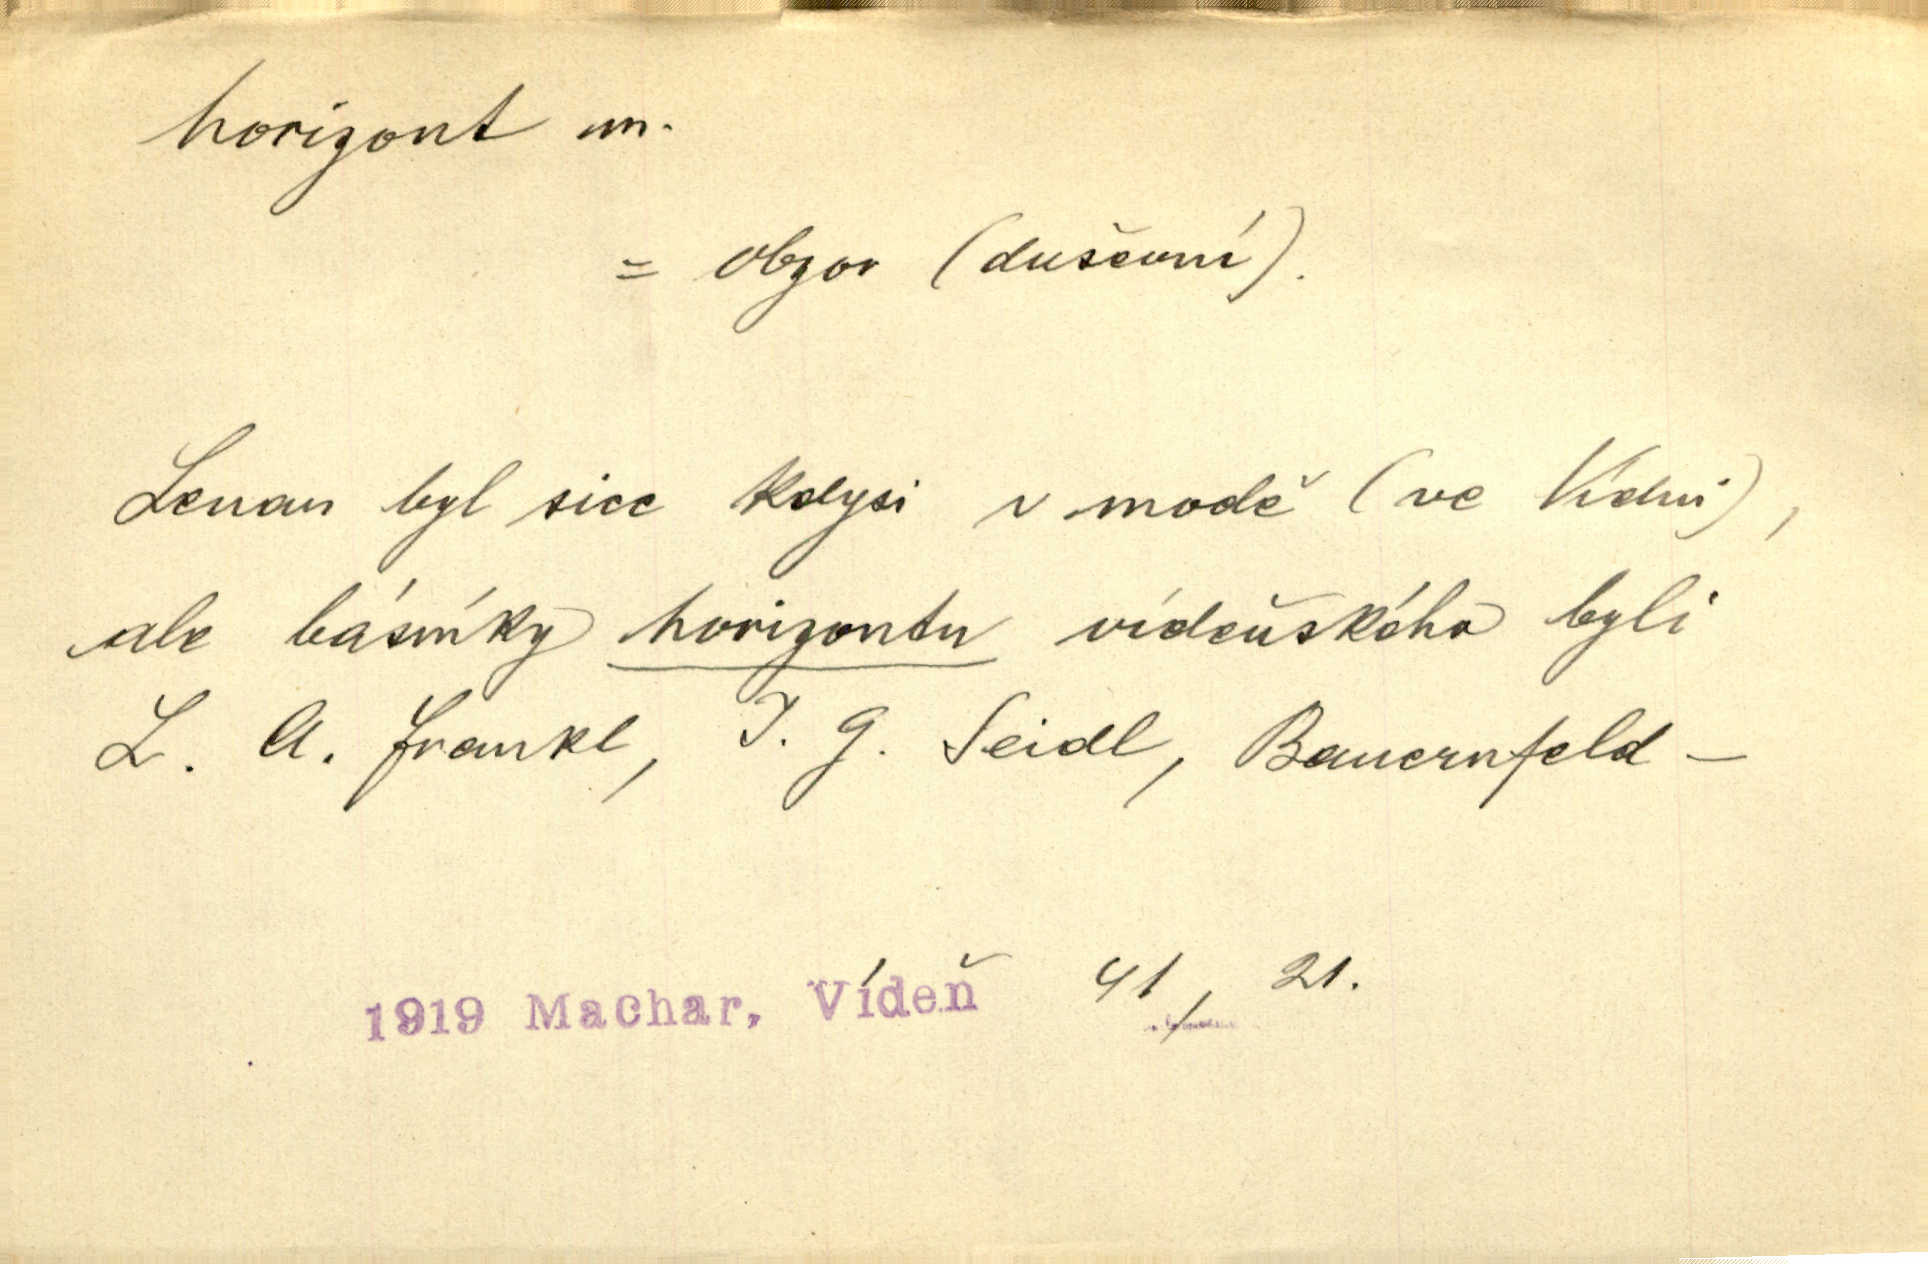 horizont m.
= obzor (duševní).
Lenau byl sice kdysi v modě (ve Vídni),
ale básníky horizontu vídeňského byli
L. A. Frankl, J. G. Seidl, Bauernfeld –
1919 Machar, Vídeň 41, 21.